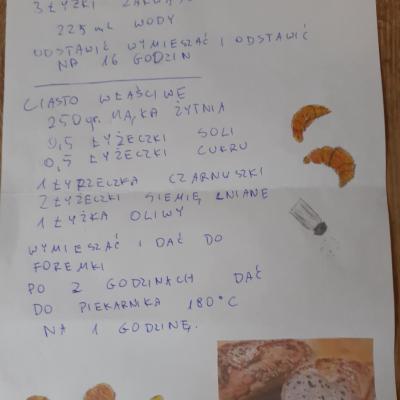 3 ŁYŻKI ZAKWASU
225 ml WODY
ODSTAWIĆ WYMIESZAĆ I ODSTAWIĆ
NA 16 GODZIN
CIASTO WŁAŚCIWE
250 gr. MĄKA ŻYTNIA
0,5 ŁYŻECZKI SOLI
0,5 ŁYŻECZKI CUKRU
1 ŁYRZECZKA CZARNUSZKI
2 ŁYŻECZKI SIEMIĘ LNIANE
1 ŁYŻKA OLIWY
WYMIESZAĆ I DAĆ DO
FOREMKI
PO 2 GODZINACH DAĆ
DO PIEKARNIKA 180°C
NA 1 GODZINĘ.